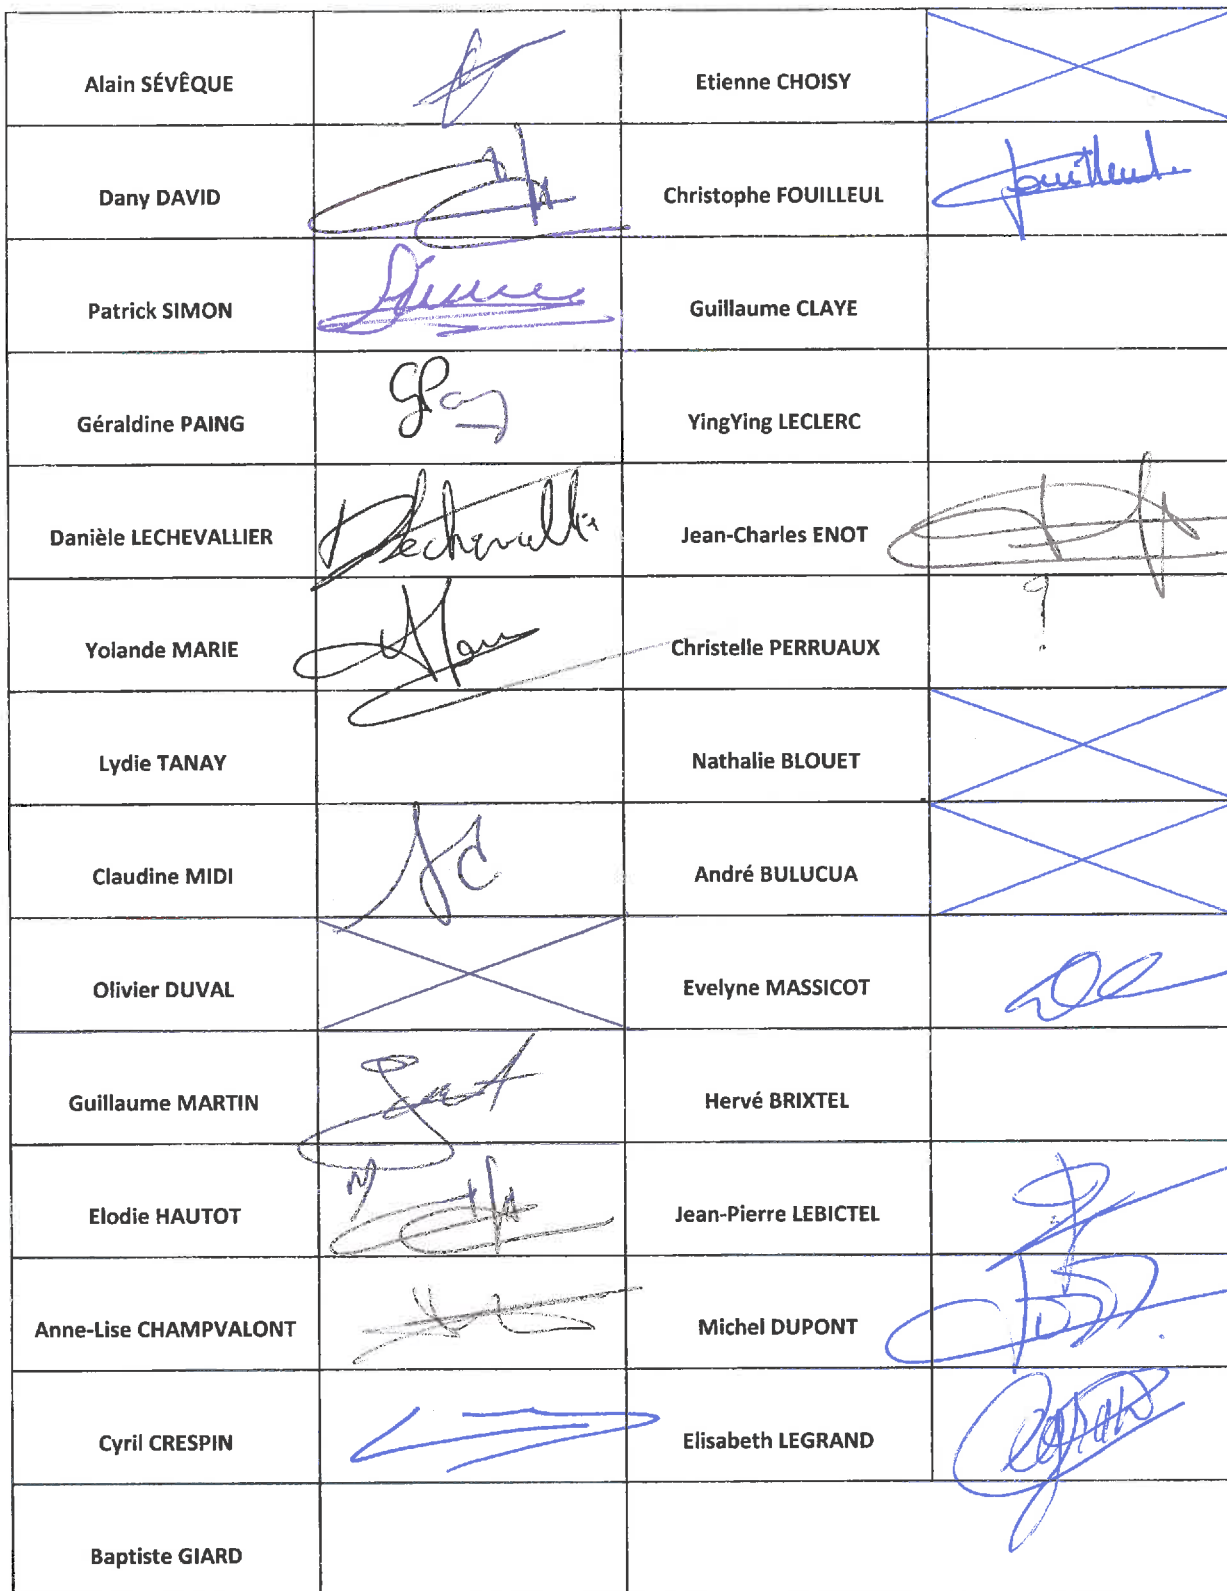 Alain SÉVÊQUE
Etienne CHOISY
Dany DAVID
Christophe FOUILLEUL
Patrick SIMON
Guillaume CLAYE
Géraldine PAING
YingYing LECLERC
Danièle LECHEVALLIER
Jean-Charles ENOT
Yolande MARIE
Christelle PERRUAUX
Lydie TANAY
Nathalie BLOUET
Claudine MIDI
André BULUCUA
Olivier DUVAL
Evelyne MASSICOT
Guillaume MARTIN
Hervé BRIXTEL
Elodie HAUTOT
Jean-Pierre LEBICTEL
Anne-Lise CHAMPVALONT
Michel DUPONT
Cyril CRESPIN
Elisabeth LEGRAND
Baptiste GIARD